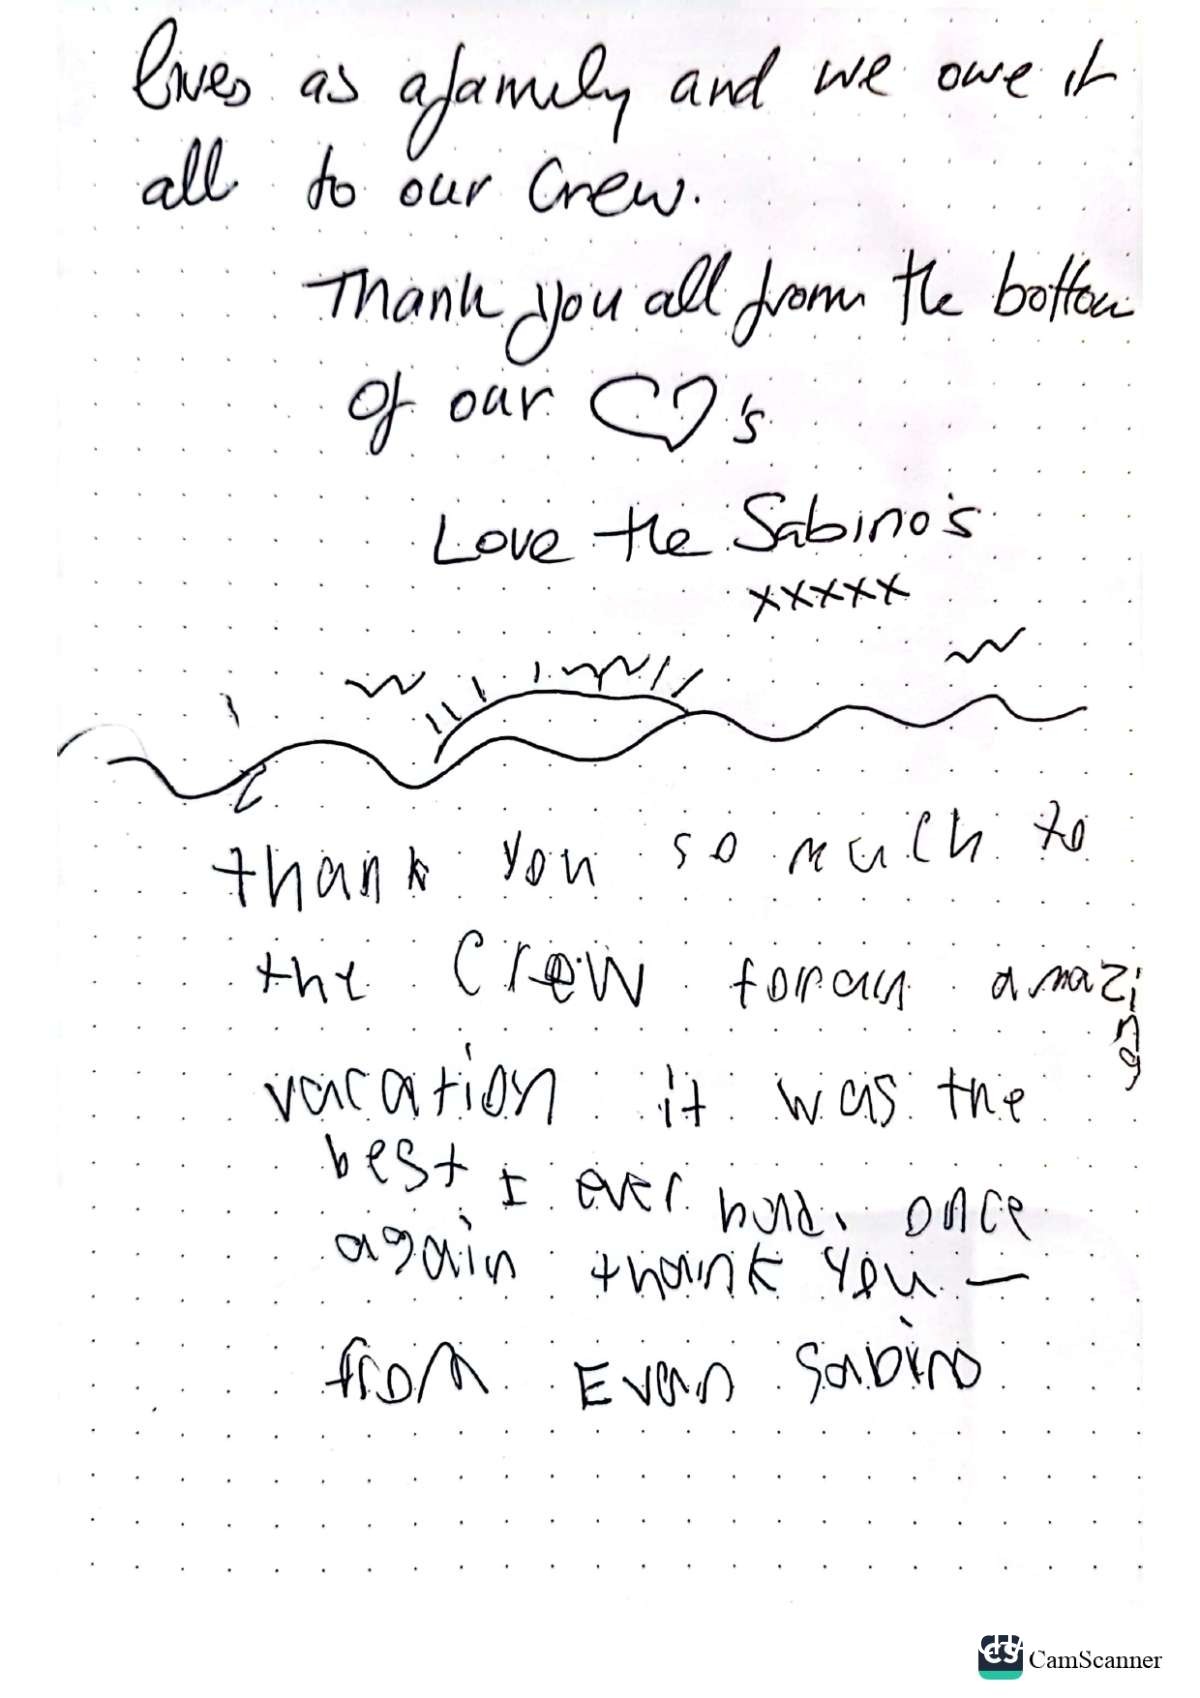 lives as a family and we owe it
all to our Crew.
Thank you all from the bottom
of our ♡'s
Love the Sabino's
xxxxx
thank you so much to
the Crew for an amazing
vacation it was the
best I ever had. once
again thank you —
from Evan Sabino
CS CamScanner